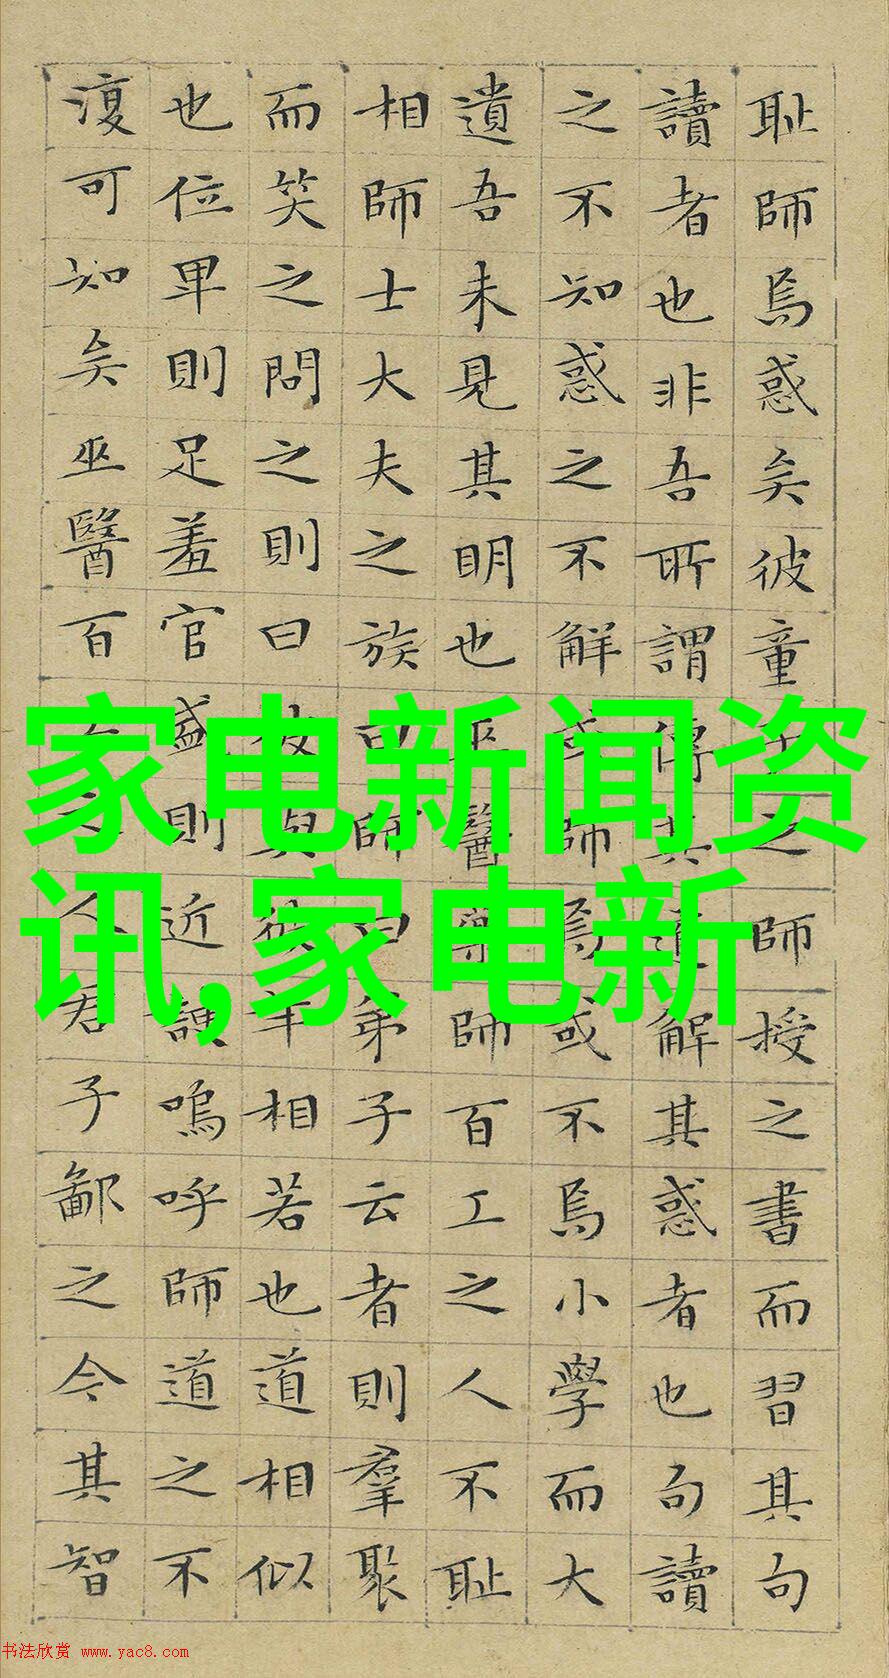 耻師焉惑矣彼童子之師授之書而習其句
讀者也非吾所謂傳其道解其惑者也句讀
之不知惑之不解或師焉或不焉小學而大
遺吾未見其明也巫醫樂師百工之人不耻
相師士大夫之族曰師曰弟子云者則羣聚
而笑之問之則曰彼與彼年相若也道相似
也位卑則足羞官盛則近諛嗚呼師道之不
復可知矣巫醫百工之人君子鄙之今其智
家电新闻资
讯,家电新
书法欣赏 www.yac8.com